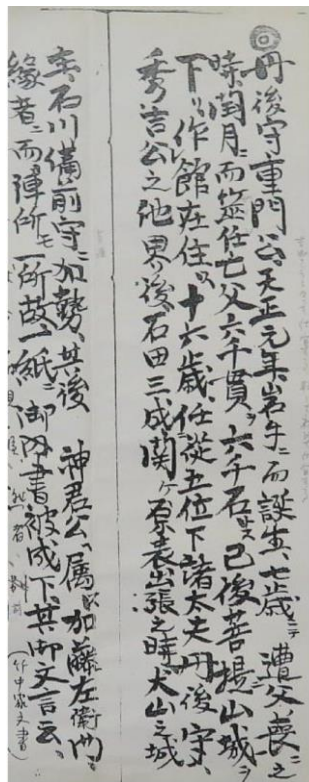 丹後守重門公、天正元年、岩手ニ而誕生、七歳ニテ遭父喪ニ之
時、閏月ニ而並任亡父六千貫ヲ六千石ニ 已後菩提山城ヲ
下リ作館在住ス、十六歳、任従五位下諸太夫丹後守、
秀吉公之他界ノ後、石田三成関ヶ原表出張之時、犬山之城
主、石川備前守ニ加勢、其後 神君公ニ属、以加藤左衛門
縁者ニ而陣所モ一所故、一紙ニ御内書被成下、其御文言云、
(竹中家文書)